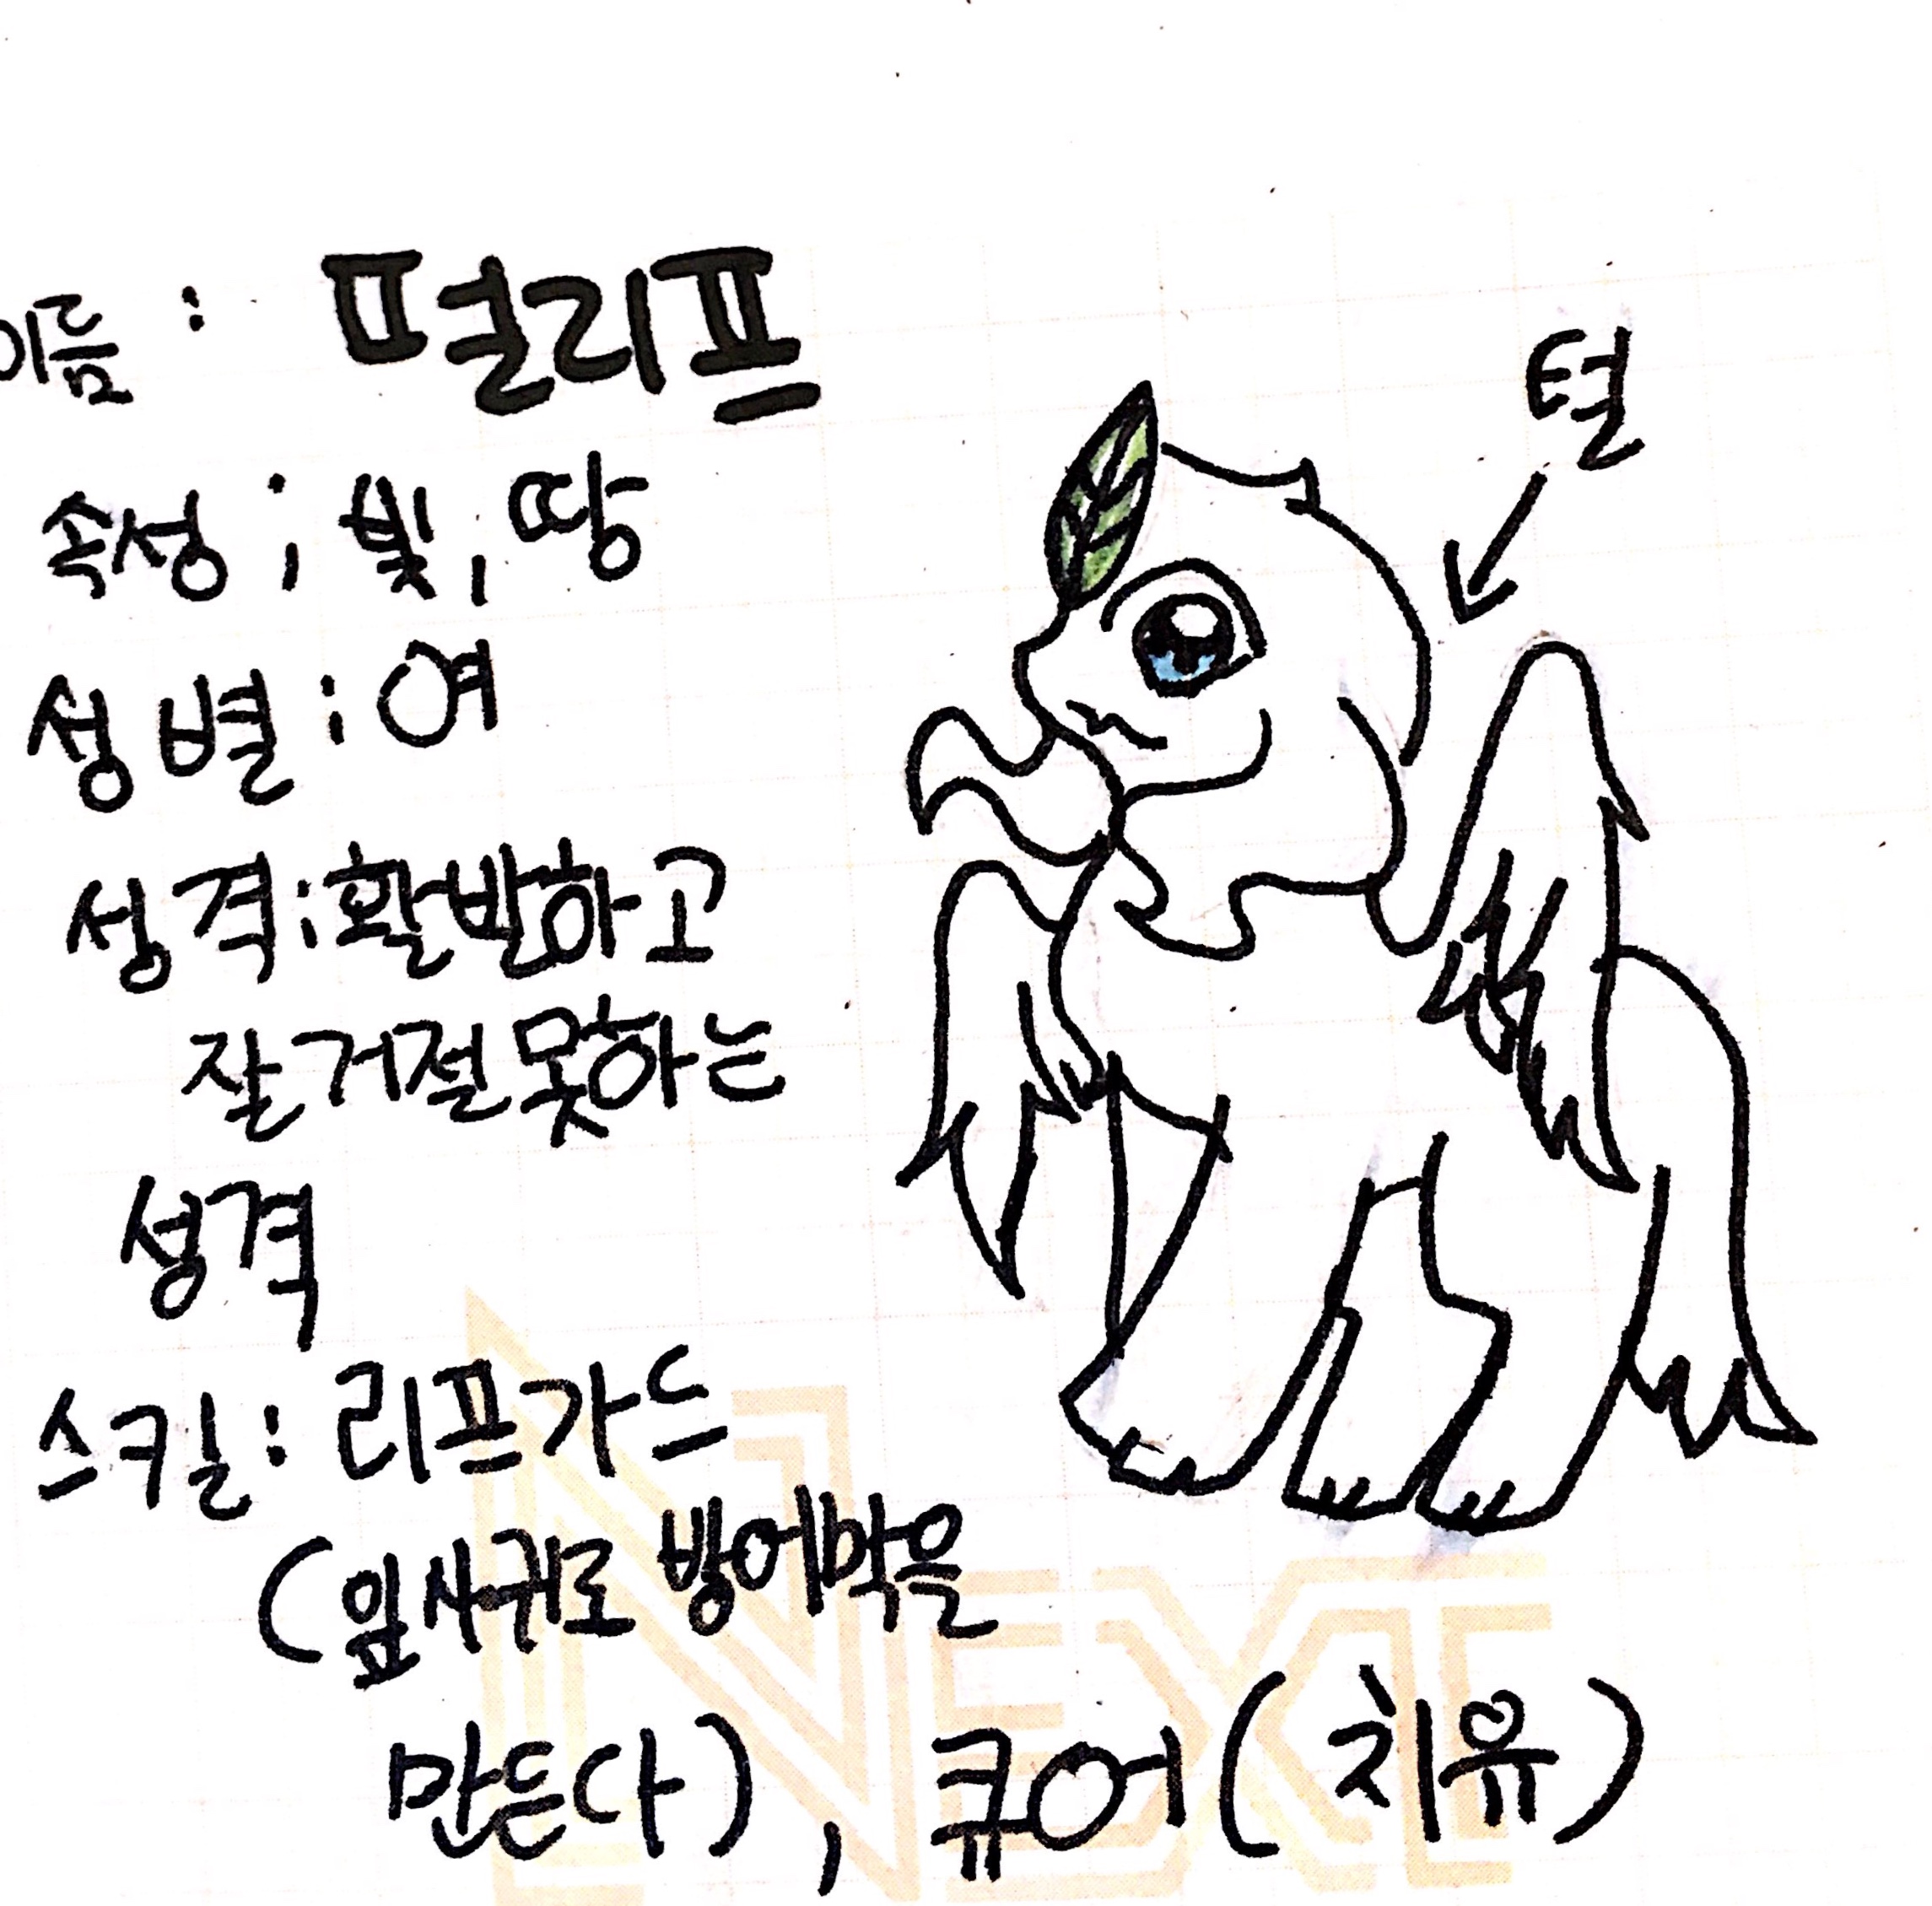 이름 : 펄리프
속성 ; 빛, 땅
성별 : 여
성격 : 활발하고
잘 거절 못하는
성격
스킬 : 리프가드
(잎사귀로 방어막을
만든다), 큐어(치유)
털
NEXT